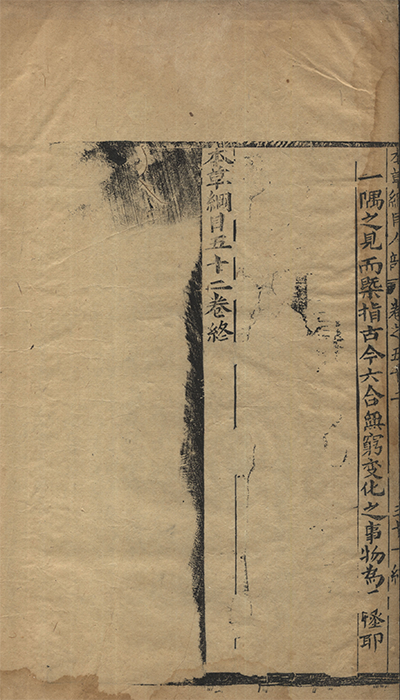 本草綱目人部 卷之五十二
一隅之見而槩指古今六合無窮变化之事物為耶
本草綱目五十二卷終